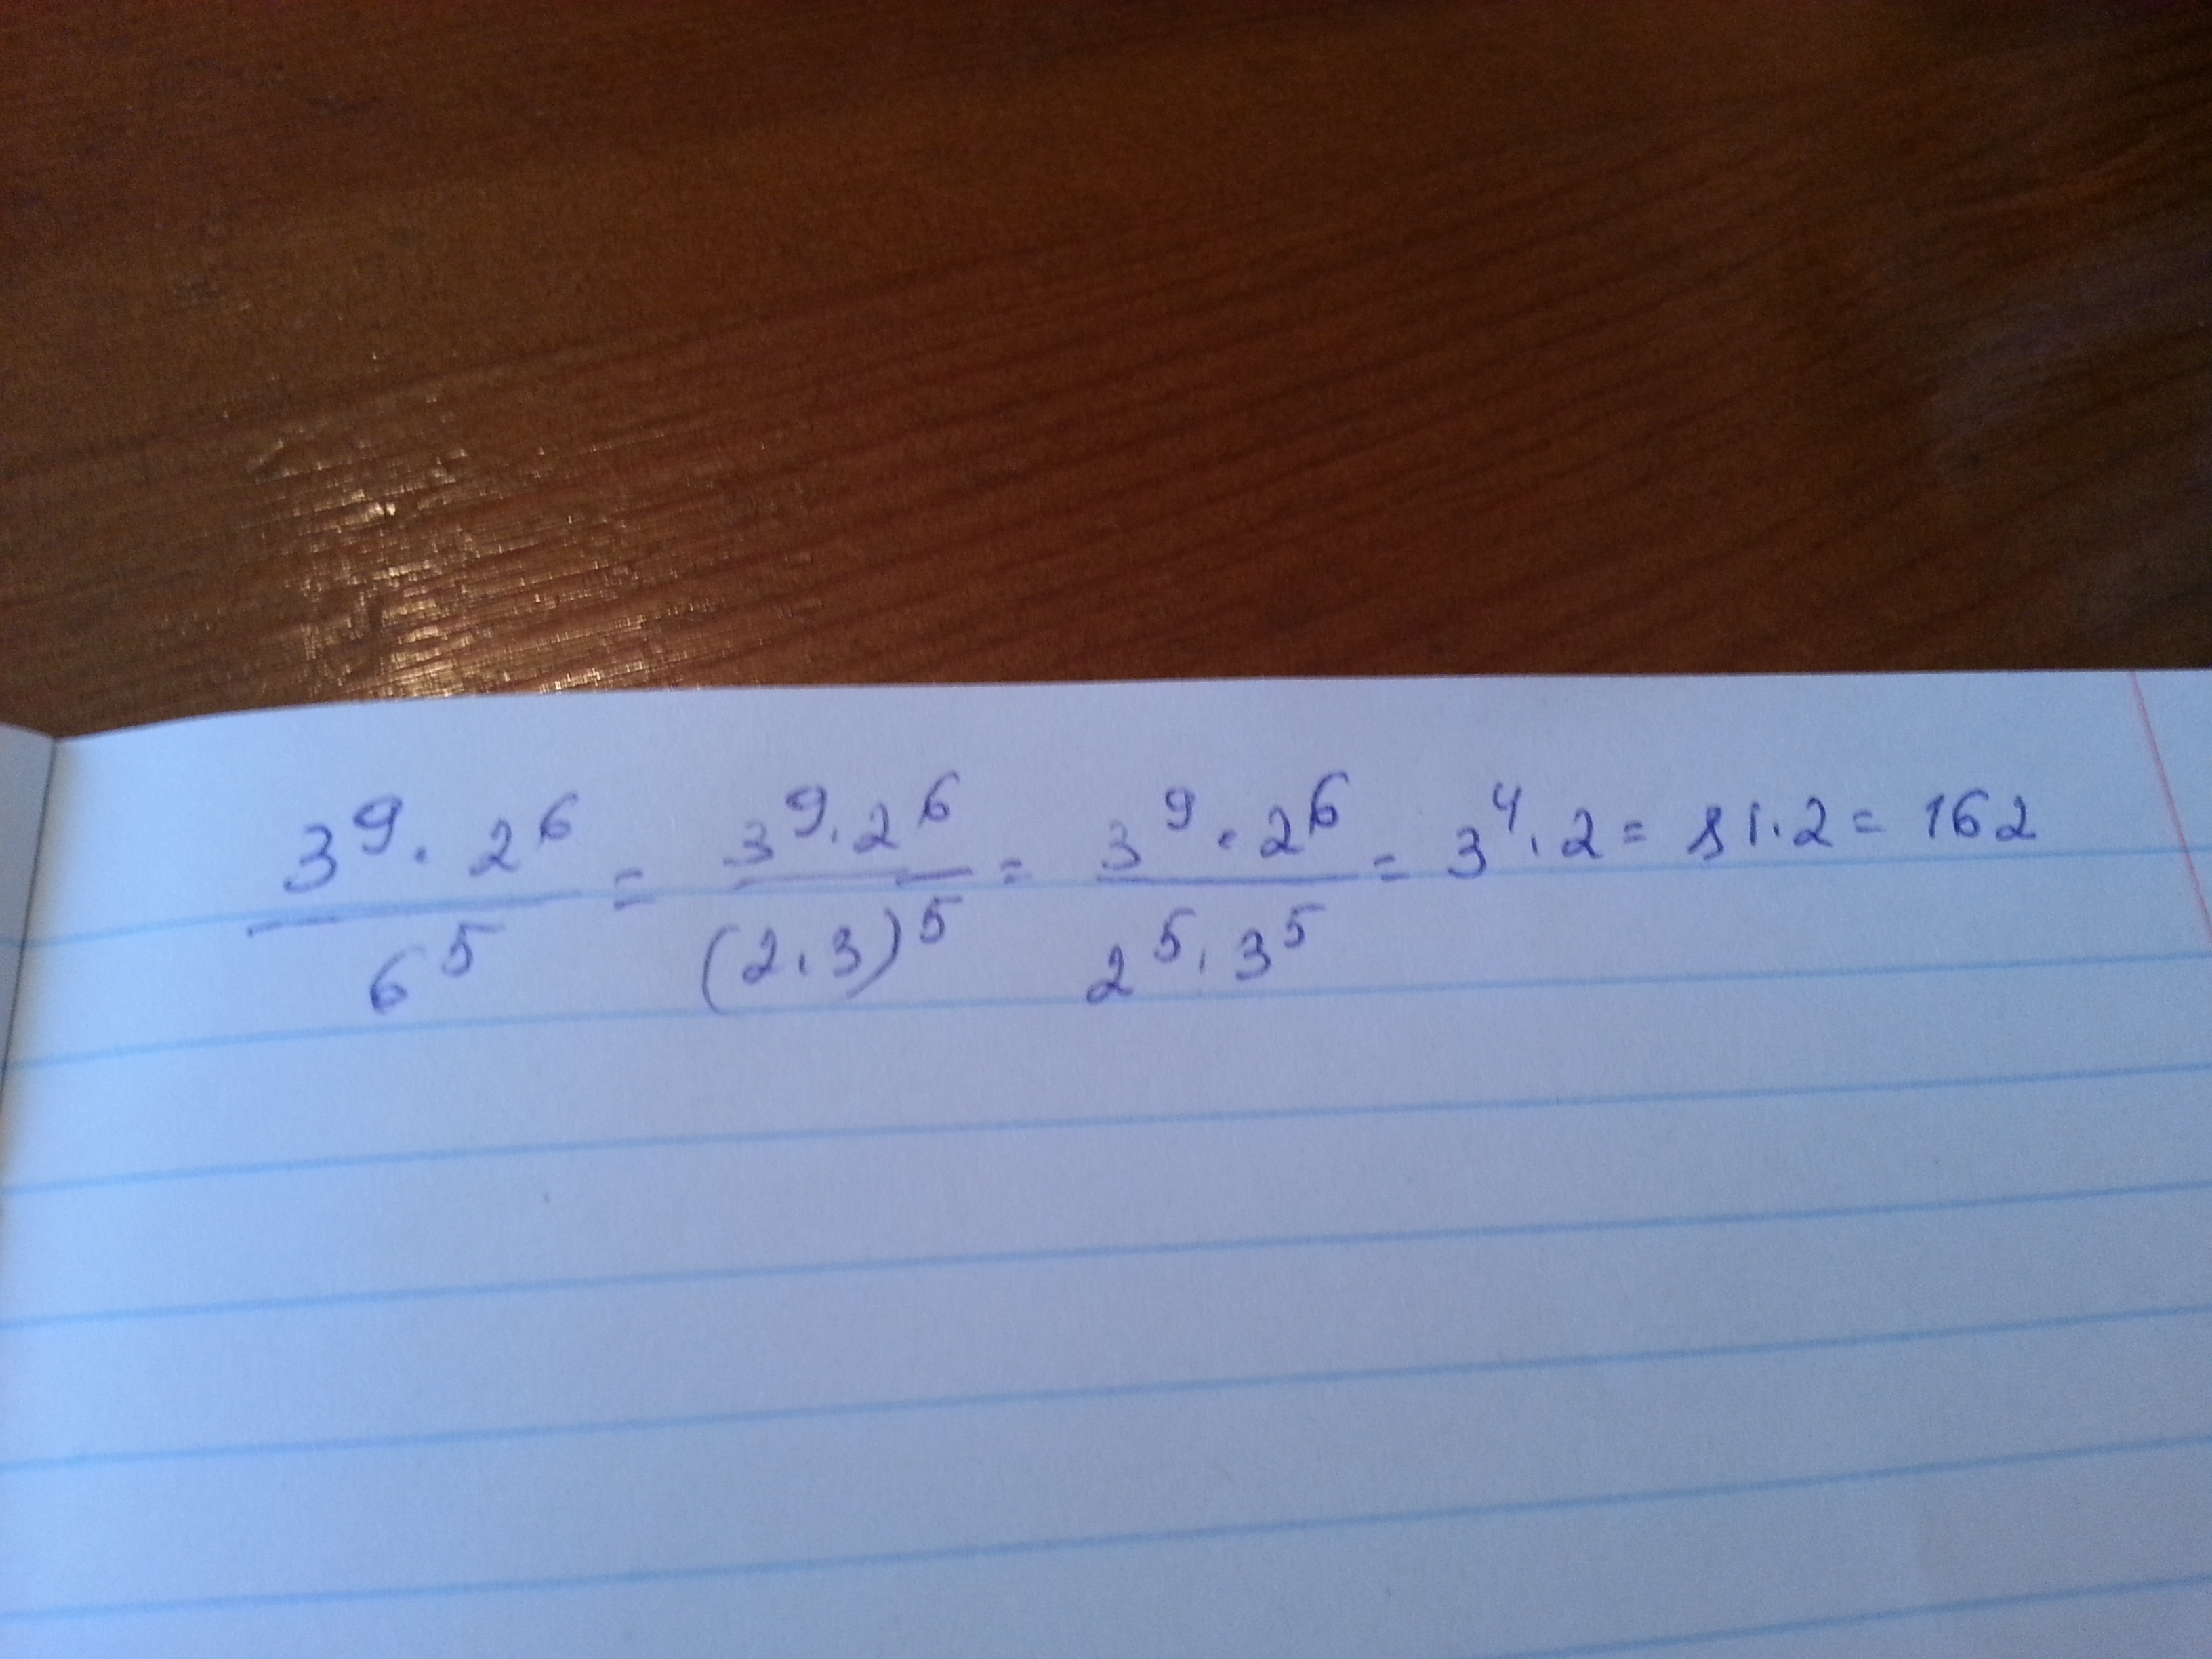 3⁹·2⁶/6⁵ = 3⁹·2⁶/(2·3)⁵ = 3⁹·2⁶/2⁵·3⁵ = 3⁴·2 = 81·2 = 162